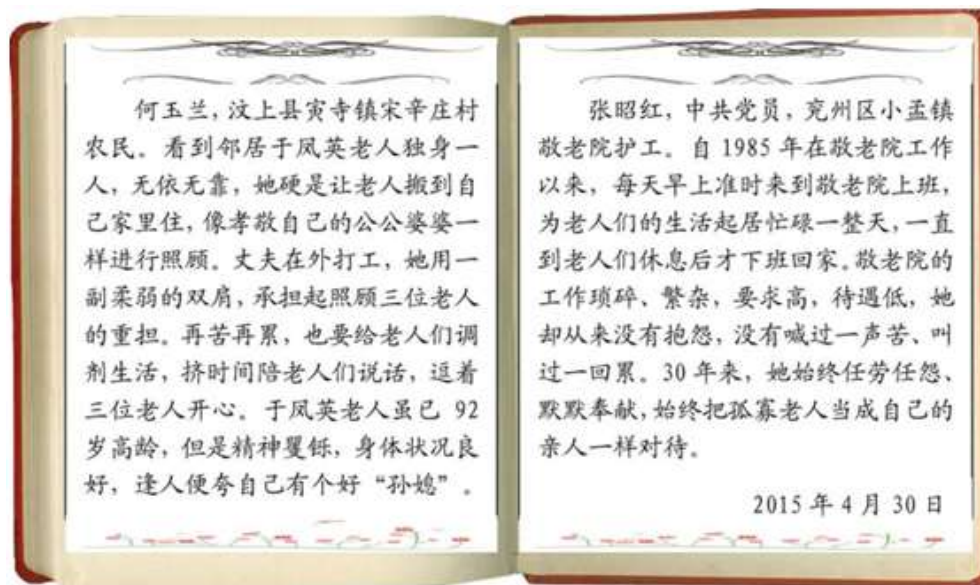 何玉兰，汶上县寅寺镇宋辛庄村
农民。看到邻居于凤英老人独身一
人，无依无靠，她硬是让老人搬到自
己家里住，像孝敬自己的公公婆婆一
样进行照顾。丈夫在外打工，她用一
副柔弱的双肩，承担起照顾三位老人
的重担。再苦再累，也要给老人们调
剂生活，挤时间陪老人们说话，逗着
三位老人开心。于凤英老人虽已 92
岁高龄，但是精神矍铄，身体状况良
好，逢人便夸自己有个好“孙媳”。
张昭红，中共党员，兖州区小孟镇
敬老院护工。自 1985 年在敬老院工作
以来，每天早上准时来到敬老院上班，
为老人们的生活起居忙碌一整天，一直
到老人们休息后才下班回家。敬老院的
工作琐碎、繁杂，要求高，待遇低，她
却从来没有抱怨，没有喊过一声苦、叫
过一回累。30 年来，她始终任劳任怨、
默默奉献，始终把孤寡老人当成自己的
亲人一样对待。
2015 年 4 月 30 日